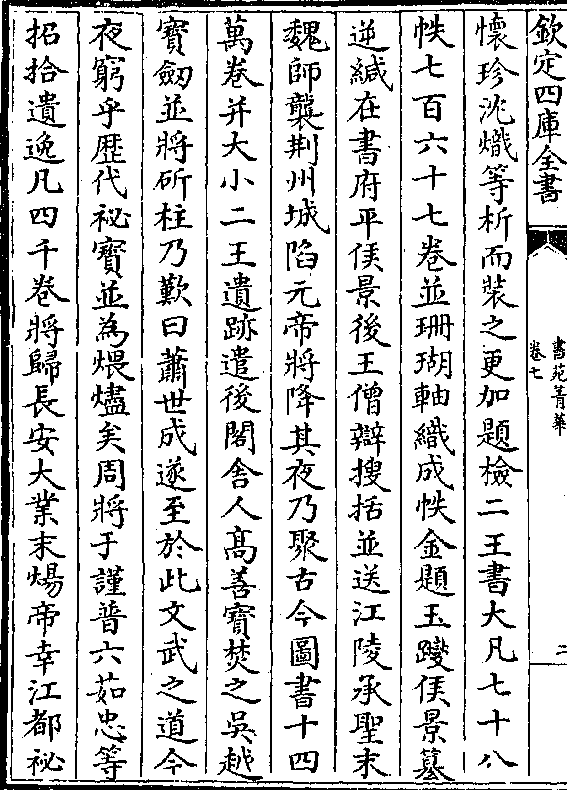 欽定四庫全書
書苑菁華
卷七
二
懷珍沈熾等析而装之更加題檢二王書大凡七十八
帙七百六十七卷並珊瑚軸織成帙金題玉躞侯景簒
逆緘在書府平侯景後王僧辯搜括並送江陵承聖末
魏師襲荆州城陷元帝將降其夜乃聚古今圖書十四
萬卷并大小二王遺跡遣後閣舍人髙善寶焚之吳越
寶劒並將斫柱乃歎曰蕭世成遂至於此文武之道今
夜窮乎歴代祕寶並為煨燼矣周將于謹普六茹忠等
招拾遺逸凡四千卷將歸長安大業末煬帝幸江都祕